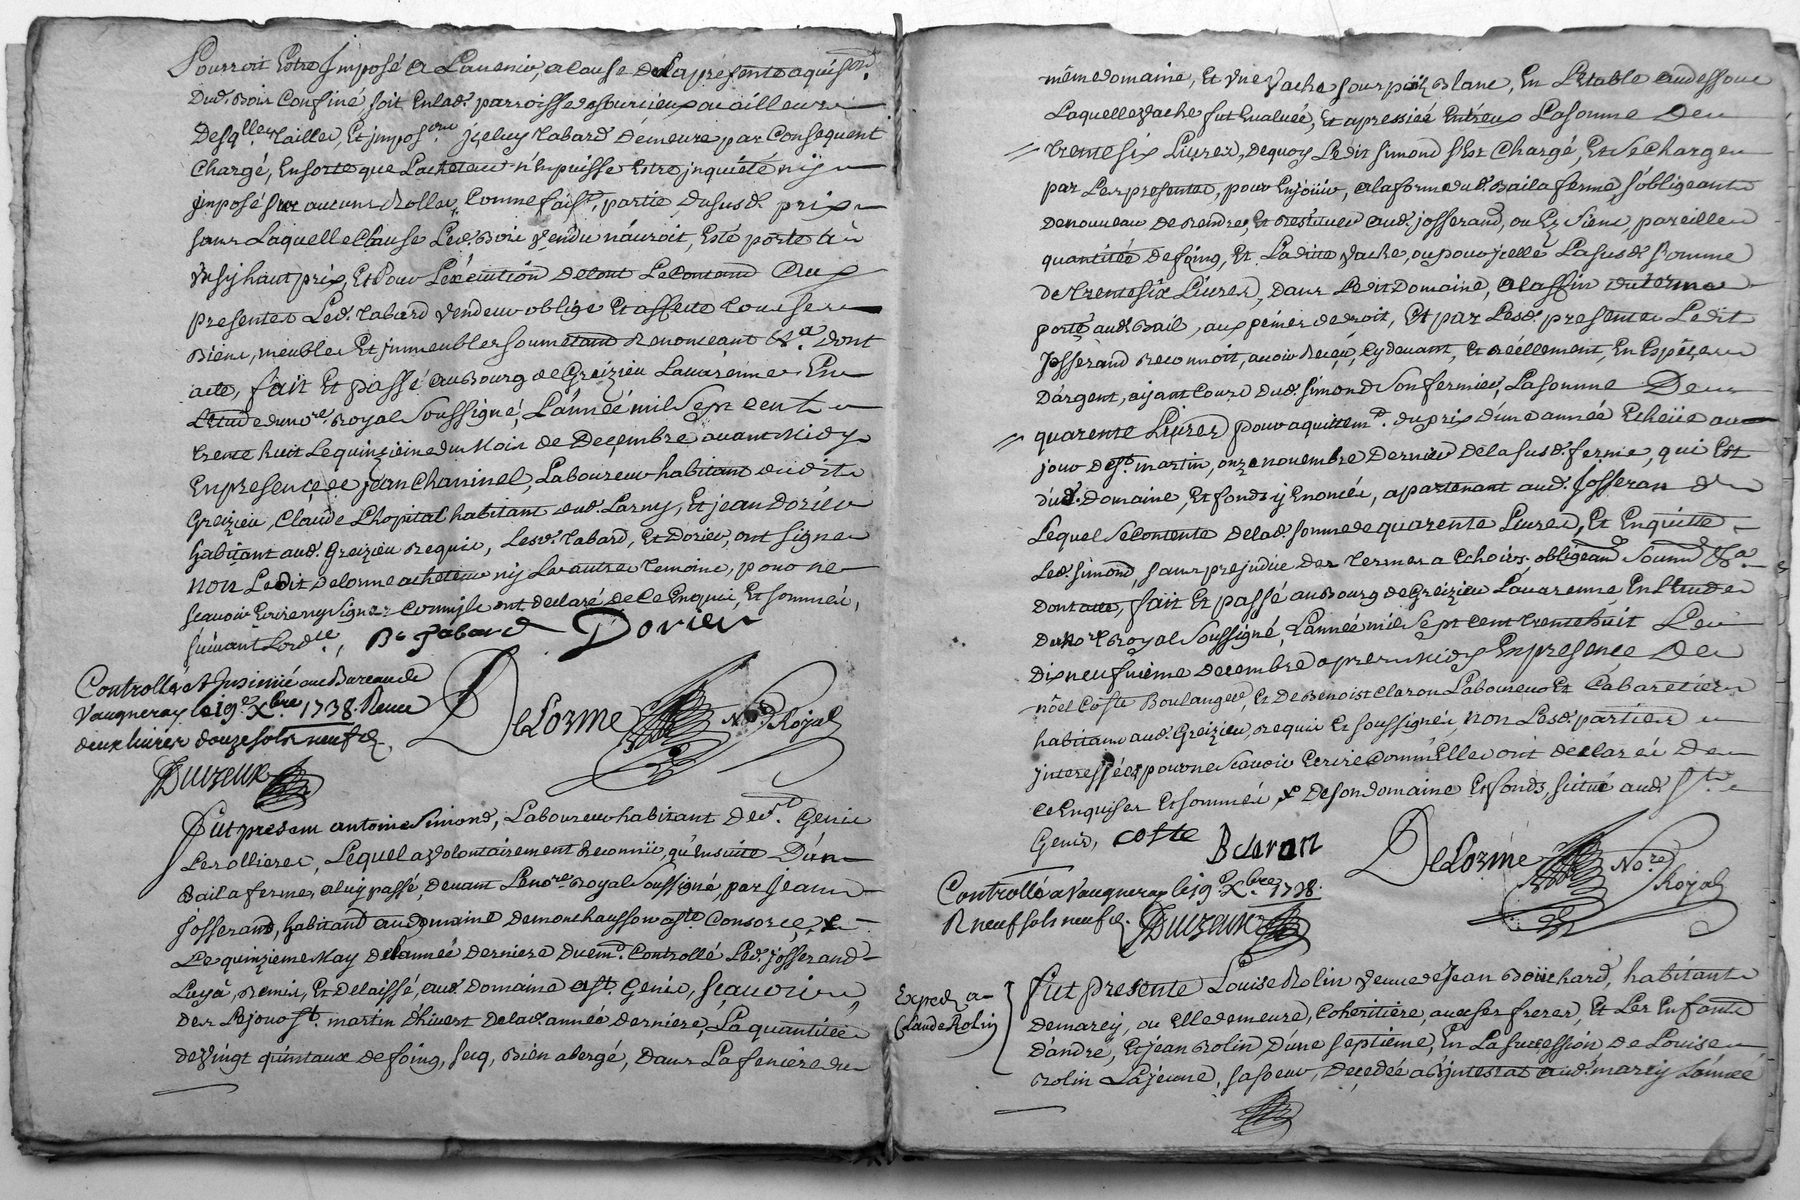 Pourroit Estre Jmposé a Lauenir, a Cause de Lapresente aquison.
Dud. Bois Confiné, soit En lad. parroisse de sourcieux ou ailleurs
Desqlles tailles, Et jmposons jceluy tabard Demeure par Consequent
Chargé, Ensorte que Lacheteur n'En puisse Estre jnquiété ny
jmposé sur aucuns Rolles, Comme faist. partie, du susd. prix
sans Laquelle Clause Led. Bois Vendu nauroit, Esté porté à
Vn sy haut prix, Et Pour Léxécution de tout Le Contenu Aux
presentes Led. tabard Vendeur oblige Et affecte tous ses
Biens, meubles Et jmmeubles soumetant Renonceant &a. dont
acte, fait Et passé au Bourg de Greizieu Lavarenne En
L'étude du nore. Royal Soussigné, L'année mil Sept cent
trente huit Le quinzieme du Mois de Decembre avant Midy
En presence de jean Chaninel, Laboureur habitant dudit
Greizieu, Claude Lhopital habitant dud. Larny, Et jean Dorier
habitant aud. Greizieu Requis, Lesd. tabard, Et Dorier, ont signé
non Ledit Delorme acheteur ny Les autres temoins, pour ne
scauoir Ecrire ny signer Comm'ils ont declaré de Ce Enquis, Et sommés,
suiuant Lordce., Be Tabard Dorier
Controllé & Jnsinué au Bureau de
Vaugneray le 19e Xbre 1738. Receu
deux liures douze sols neuf d.
DeLorme Nore Royal
Duizeux
Fut present antoine Simond, Laboureur habitant de St. Genis
Lesollieres, Lequel a Volontairement Reconnu, qu'En suite D'un
Bail a ferme, a luy passé, deuant Le nore. Royal Soussigné, par Jean
Josserand, habitand au domaine de monchausson aste. Consorce,
Le quinzieme May de l'année derniere duemt. Controllé Led. josserand
Luy a, Remis, Et delaissé, aud. Domaine a st. Genis, scauoir
Des Lejour St. martin d'hiuert de lad. année derniere, La quantitée
de Vingt quintaux de foing, secq, Bien abergé, Dans La feniere du
même domaine, Et Vne Vache sour poil Blanc, En L'étable audessous
Laquelle Vache fut Eualuée, Et apressiée Entreux La somme De
trente six Liures, De quoy Ledit simond s'Est Chargé, Et se Charge
par Les presentes, pour En joüir, a la forme dud. Bail a ferme, s'obligeant
De nouveau de Rendre, Et Restituer aud. josserand, ou Ez Siens, pareilles
quantités de foing, Et Ladite Vache, ou pour jcelle La susd. somme
de trente six Liures, Dans Ledit Domaine, a la ffin du terme
porté aud. Bail, aux peines de droit, Et par Lesd. presentes Ledit
Josserand Reconnoit, auoir Receu, Cy deuant, Et réellement, En Especes
D'argent, ayant Cours Dud. simond son fermier, La somme De
quarente Liures pour aquittemt. du prix d'une année Echeüe au
jour de st. martin, onze nouembre Dernier de la susd. ferme, qui Est
dud. Domaine, Et fonds y Enoncés, apartenant aud. Josserand
Lequel se Contente de lad. somme de quarente Liures, Et En quitte
Led. simond, sans prejudice des termes a Echoirs. obligeand soumd. &a.
Dont acte, fait Et passé au bourg de Greizieu Lauarenne En L'étude
Du Nore. Royal Soussigné, L'année mil Sept cent trente huit Le
Dix neufuieme decembre apres Midy En presence De
nôel Coste Boulanger, Et De Benoist Claron Laboureur Et Cabaretier
habitans aud. Greizieu, Requis Et soussignés, non Lesd. parties
jnteressées pour ne scauoir Ecrire Comm'Elles ont declaré De
Ce Enquises Et sommés, x De son domaine Et fonds, situé aud. St.
Genis, coste B claron
DeLorme Nore. Royal
Controllé a Vaugneray le 19e Xbre 1738.
R neuf sols neuf d. Duizeux
Exped. a
Claude Rolin
Fut presente Louise Rolin Veuue de Jean Bouchard, habitante
de marcy, ou Elle demeure, Coheritiere, auec ses freres, Et Les Enfants
d'andré, Et jean Rolin d'une septieme, En La succession de Louise
Rolin La jeune, sa soeur, Décedée abjntestat aud. marcy L'année